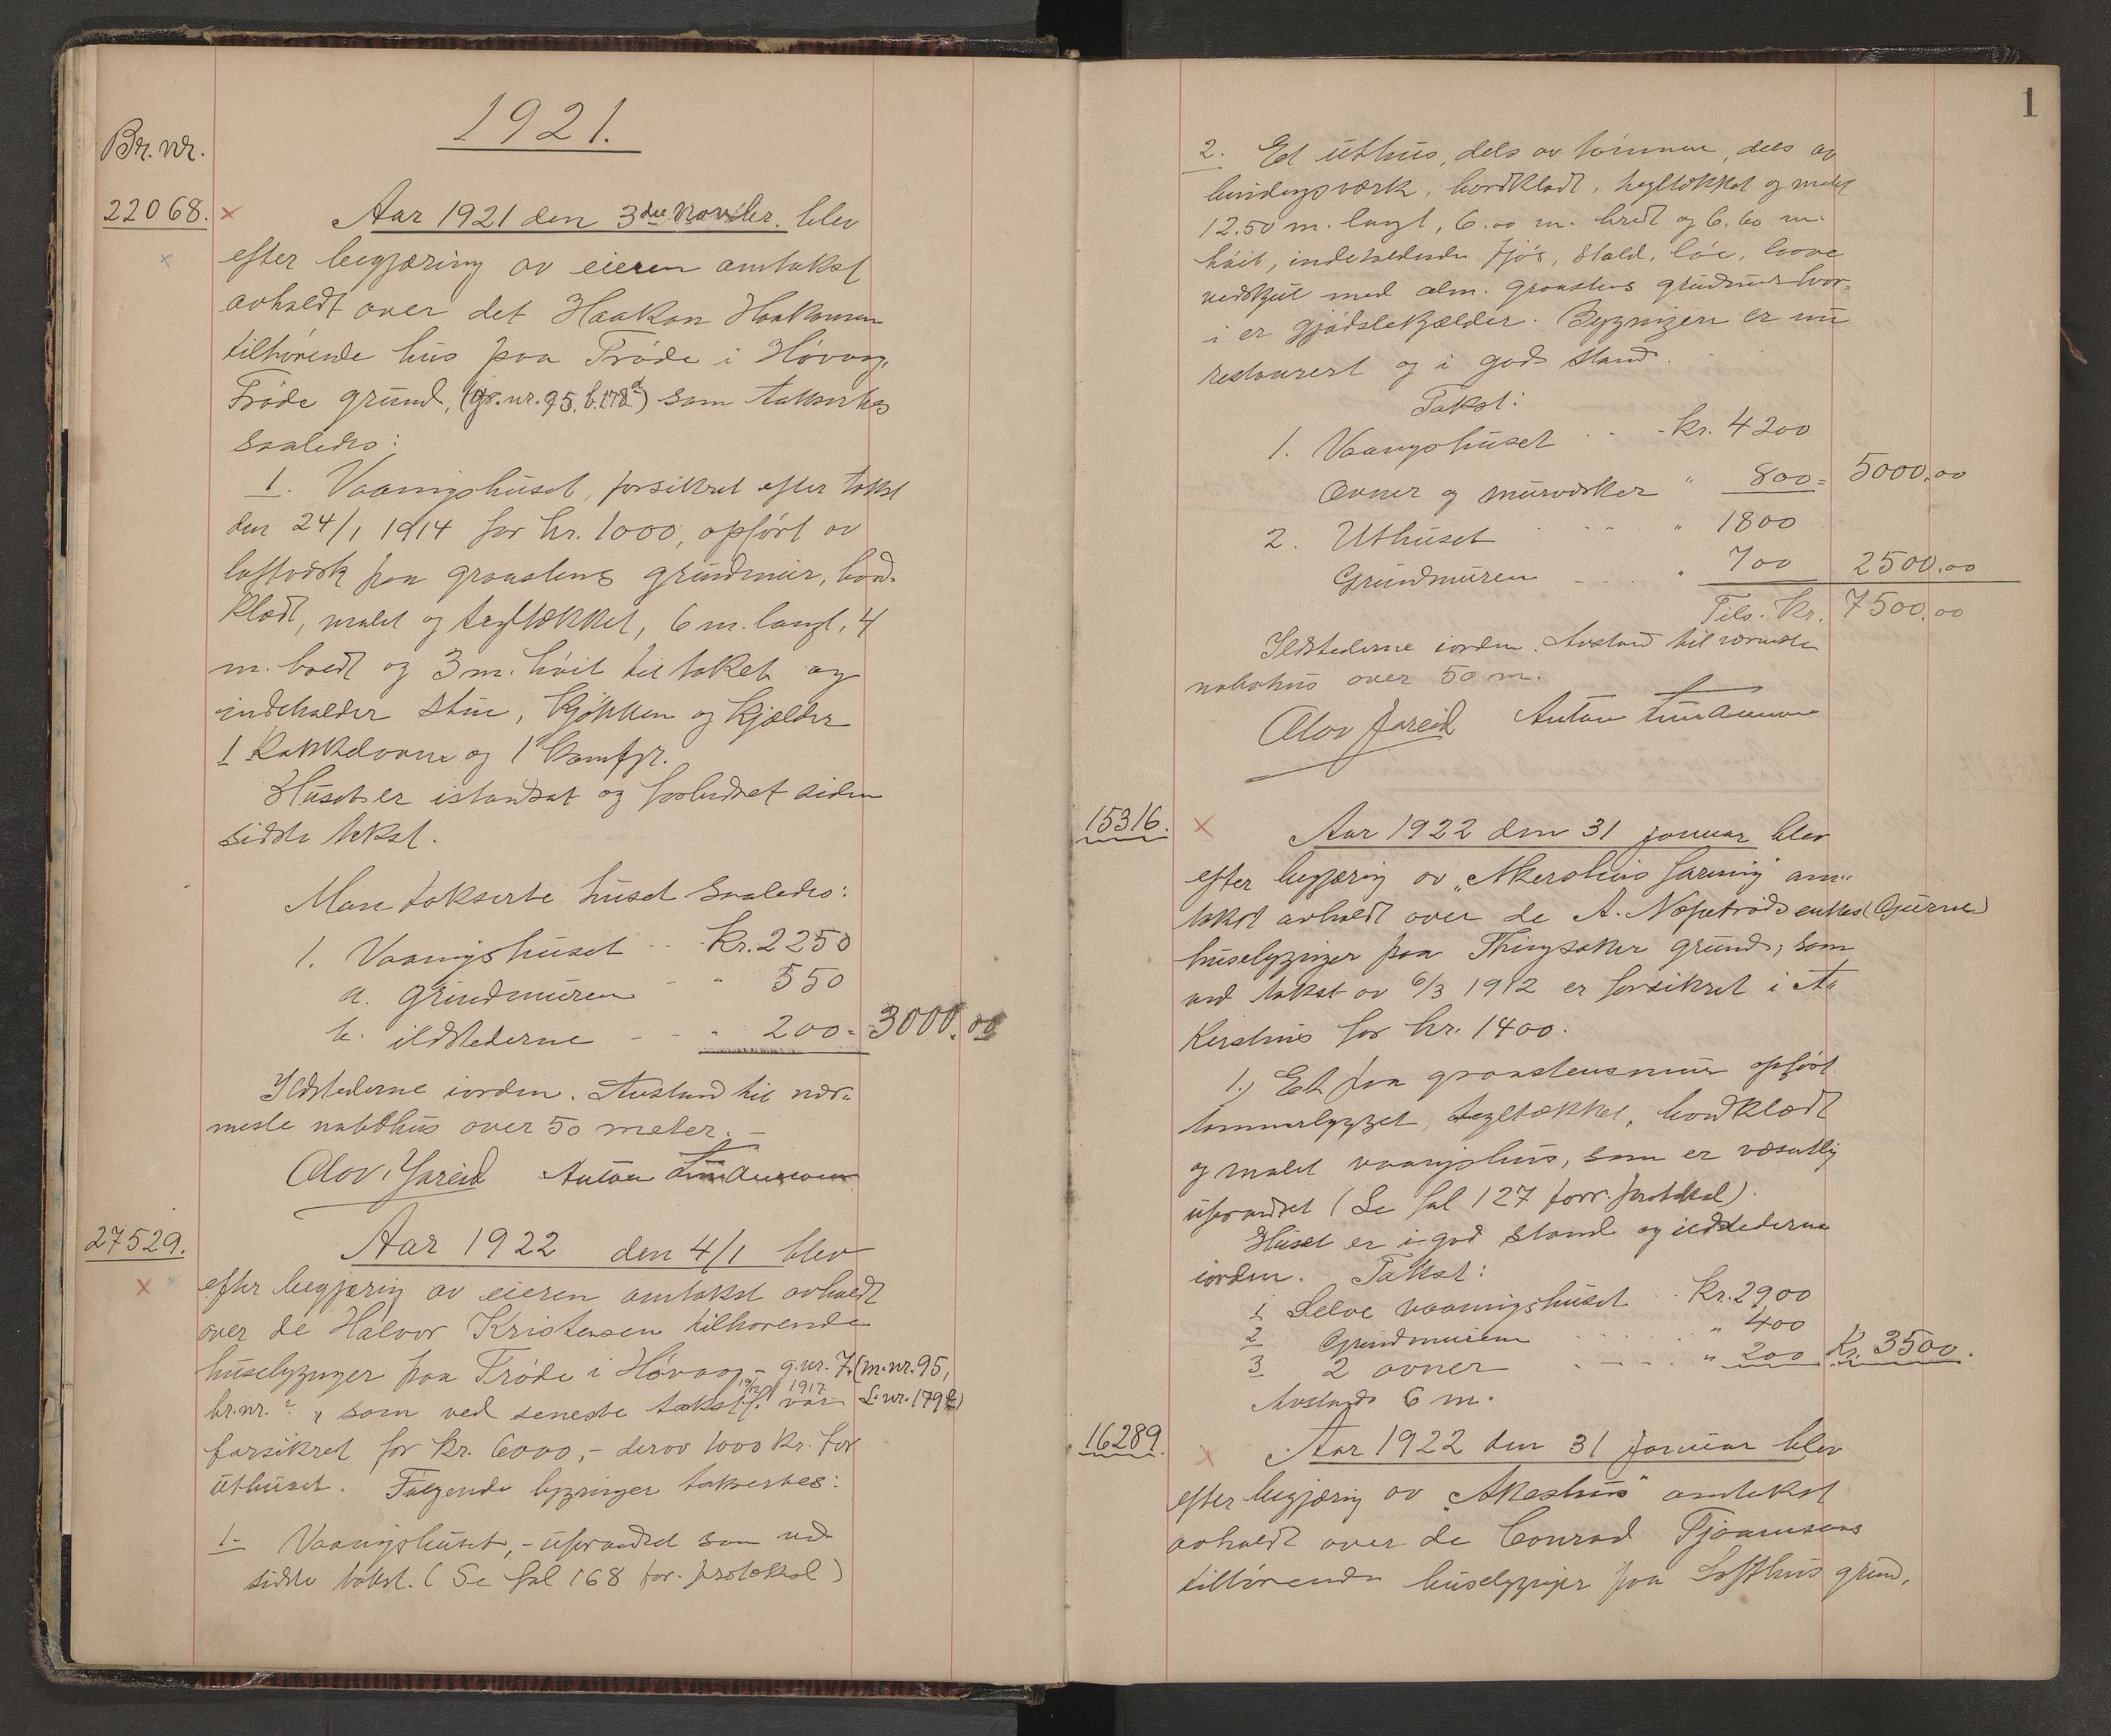 1921.
Br. nr.
22068. Aar 1921 den 3die Novbr. blev
efter begjæring av eieren omtakst
avholdt over det Haakon Haakonsen
tilhørende hus paa Trøde i Høvaag,
Trøde grund, (gr. nr. 95, b. 178d) som takseres
saaledes:
1. Vaaningshuset, forsikret efter takst
den 24/1 1914 for kr. 1000, opført av
loftverk paa graastens grundmur, bord-
klædt, malet og tegltækket, 6 m. langt, 4
m. bredt og 3 m. høit til taket og
indeholder stue, kjøkken og kjælder
1 kakkelovn og 1 komfyr.
Huset er istandsat og forbedret siden
sidste takst.
Man takserte huset saaledes:
1. Vaaningshuset kr. 2250
a. Grundmuren " 550
b. ildstederne " 200 = 3000.00
Ildstederne iorden. Avstand til nær-
meste nabohus over 50 meter.
Olov Jareid Anton
27529. Aar 1922 den 4/1 blev
efter begjæring av eieren omtakst avholdt
over de Halvor Kristensen tilhørende
husebygninger paa Trøde i Høvaag - g. nr. 7. (m. nr. 95,
br. nr. 2, som ved seneste takst 1917 var L. nr. 179
forsikret for kr. 6000,- derav 1000 kr. for
uthuset. Følgende bygninger takseres:
1- Vaaningshuset, - uforandret som ved
sidste takst. (Se fol 168 for. protokol)
1
2. Et uthus, dels av tømmer, dels av
bindingsværk, bordklædt, tegltækket og malet
12.50 m. langt, 6.00 m. bredt og 6.60 m.
høit, indeholdende fjøs, stald, løe, laave
vedskjul med alm. graastens grundmur hvor-
i er gjødslekjælder. Bygningen er nu
restaurert og i god stand.
Takst:
1. Vaaningshuset kr. 4200
Ovner og murverker " 800 = 5000.00
2. Uthuset " 1800
Grundmuren " 700 2500.00
Tils. kr. 7500.00
Ildstederne iorden. Avstand til nærmeste
nabohus over 50 m.
Olov Jareid Anton
15316. Aar 1922 den 31 januar blev
efter begjæring av "Akershus" om-
takst avholdt over de A. enkes (Gurine)
husebygninger paa Thingsaker grund, som
ved takst av 6/3 1912 er forsikret i A
kershus for kr. 1400.
1.) Et paa graastensmur opført
tømmerbygget, tegltækket, bordklædt
og malet vaaningshus, som er væsentlig
uforandret (Se fol 127 forr. protokol).
Huset er i god stand og ildstederne
iorden. Takst:
1 Selve vaaningshuset kr. 2900
2 Grundmuren " 400
3 2 ovner " 200 Kr. 3500.
Avstand 6 m.
16289. Aar 1922 den 31 januar blev
efter begjæring av "Akeshus" omtakst
avholdt over de Conrad Tjomsens
tilhørende husebygninger paa Lofthus grund,